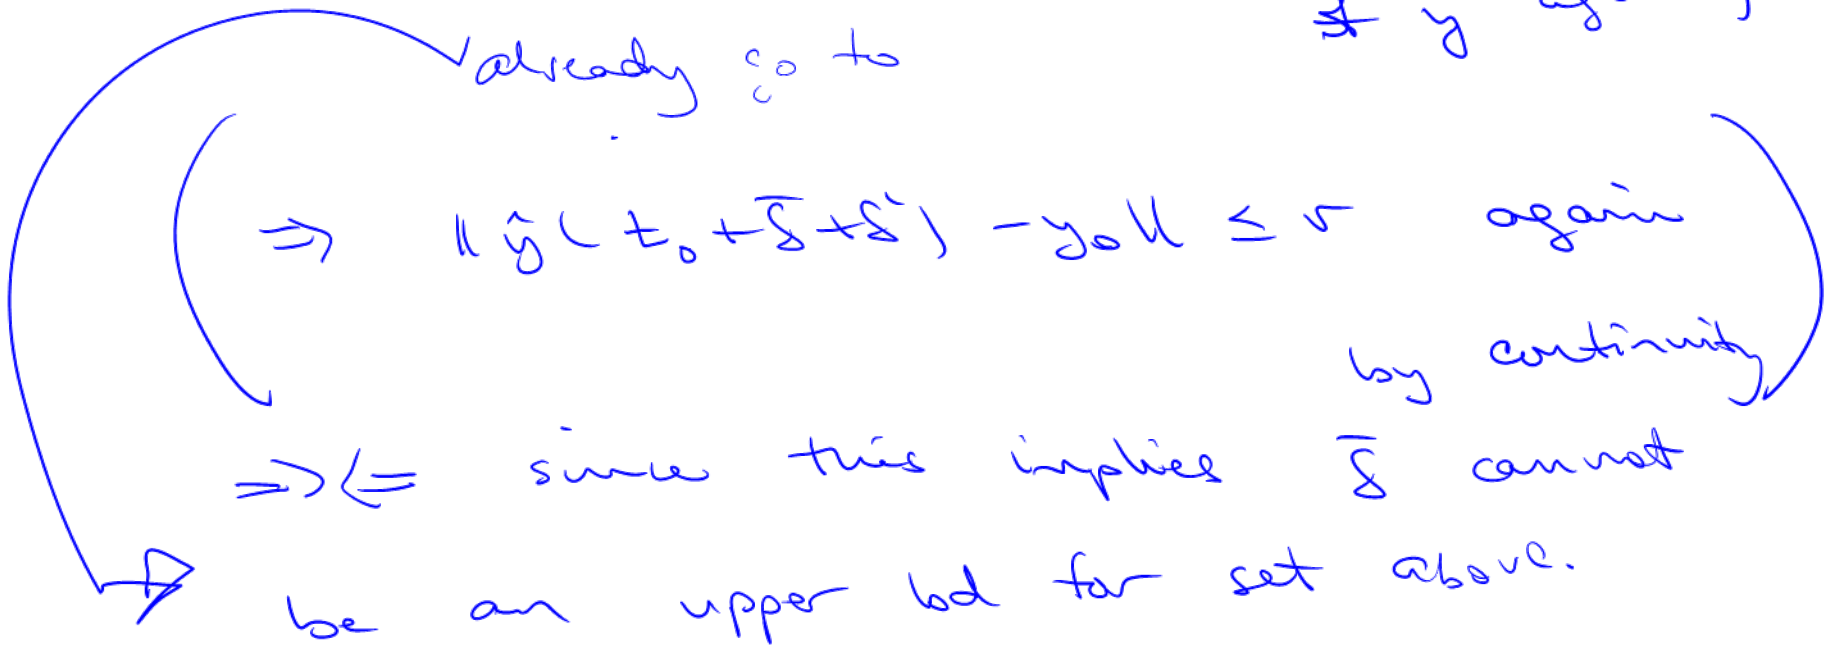 y
already go to
⇒ ‖ŷ(t₀+δ̄+δ') −y₀‖ ≤ r again
by continuity
⇒⇐ since this implies δ̄ cannot
be an upper bd for set above.